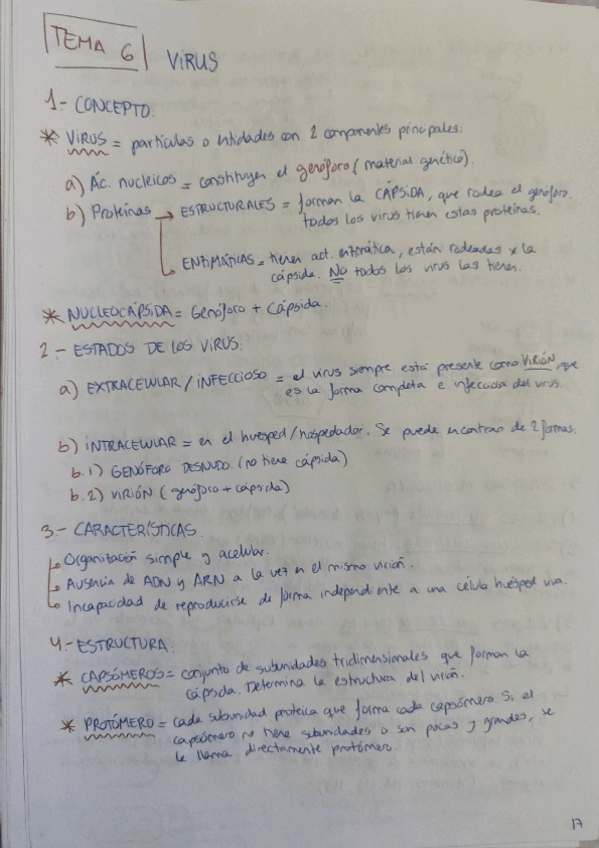 TEMA 6 VIRUS
1- CONCEPTO:
* VIRUS = partículas o entidades con 2 componentes principales:
a) Ác. nucleicos = constituyen el genóforo (material genético).
b) Proteínas → ESTRUCTURALES = forman la CÁPSIDA, que rodea el genóforo.
todos los virus tienen estas proteínas.
ENZIMÁTICAS = tienen act. enzimática, están rodeadas x la
cápsida. NO todos los virus las tienen.
* NUCLEOCÁPSIDA = Genóforo + Cápsida.
2- ESTADOS DE LOS VIRUS:
a) EXTRACELULAR / INFECCIOSO = el virus siempre está presente como VIRIÓN, que
es la forma completa e infecciosa del virus.
b) INTRACELULAR = en el huésped/hospedador. Se puede encontrar de 2 formas:
b.1) GENÓFORO DESNUDO. (no tiene cápsida)
b.2) VIRIÓN (genóforo + cápsida)
3- CARACTERÍSTICAS.
Organización simple y acelular.
Ausencia de ADN y ARN a la vez en el mismo virión.
Incapacidad de reproducirse de forma independiente a una célula huésped viva.
4- ESTRUCTURA.
* CAPSÓMEROS = conjunto de subunidades tridimensionales que forman la
cápsida. Determina la estructura del virión.
* PROTÓMERO = cada subunidad proteica que forma cada capsómero. Si el
capsómero no tiene subunidades o son pocas y grandes, se
le llama directamente protómero.
17